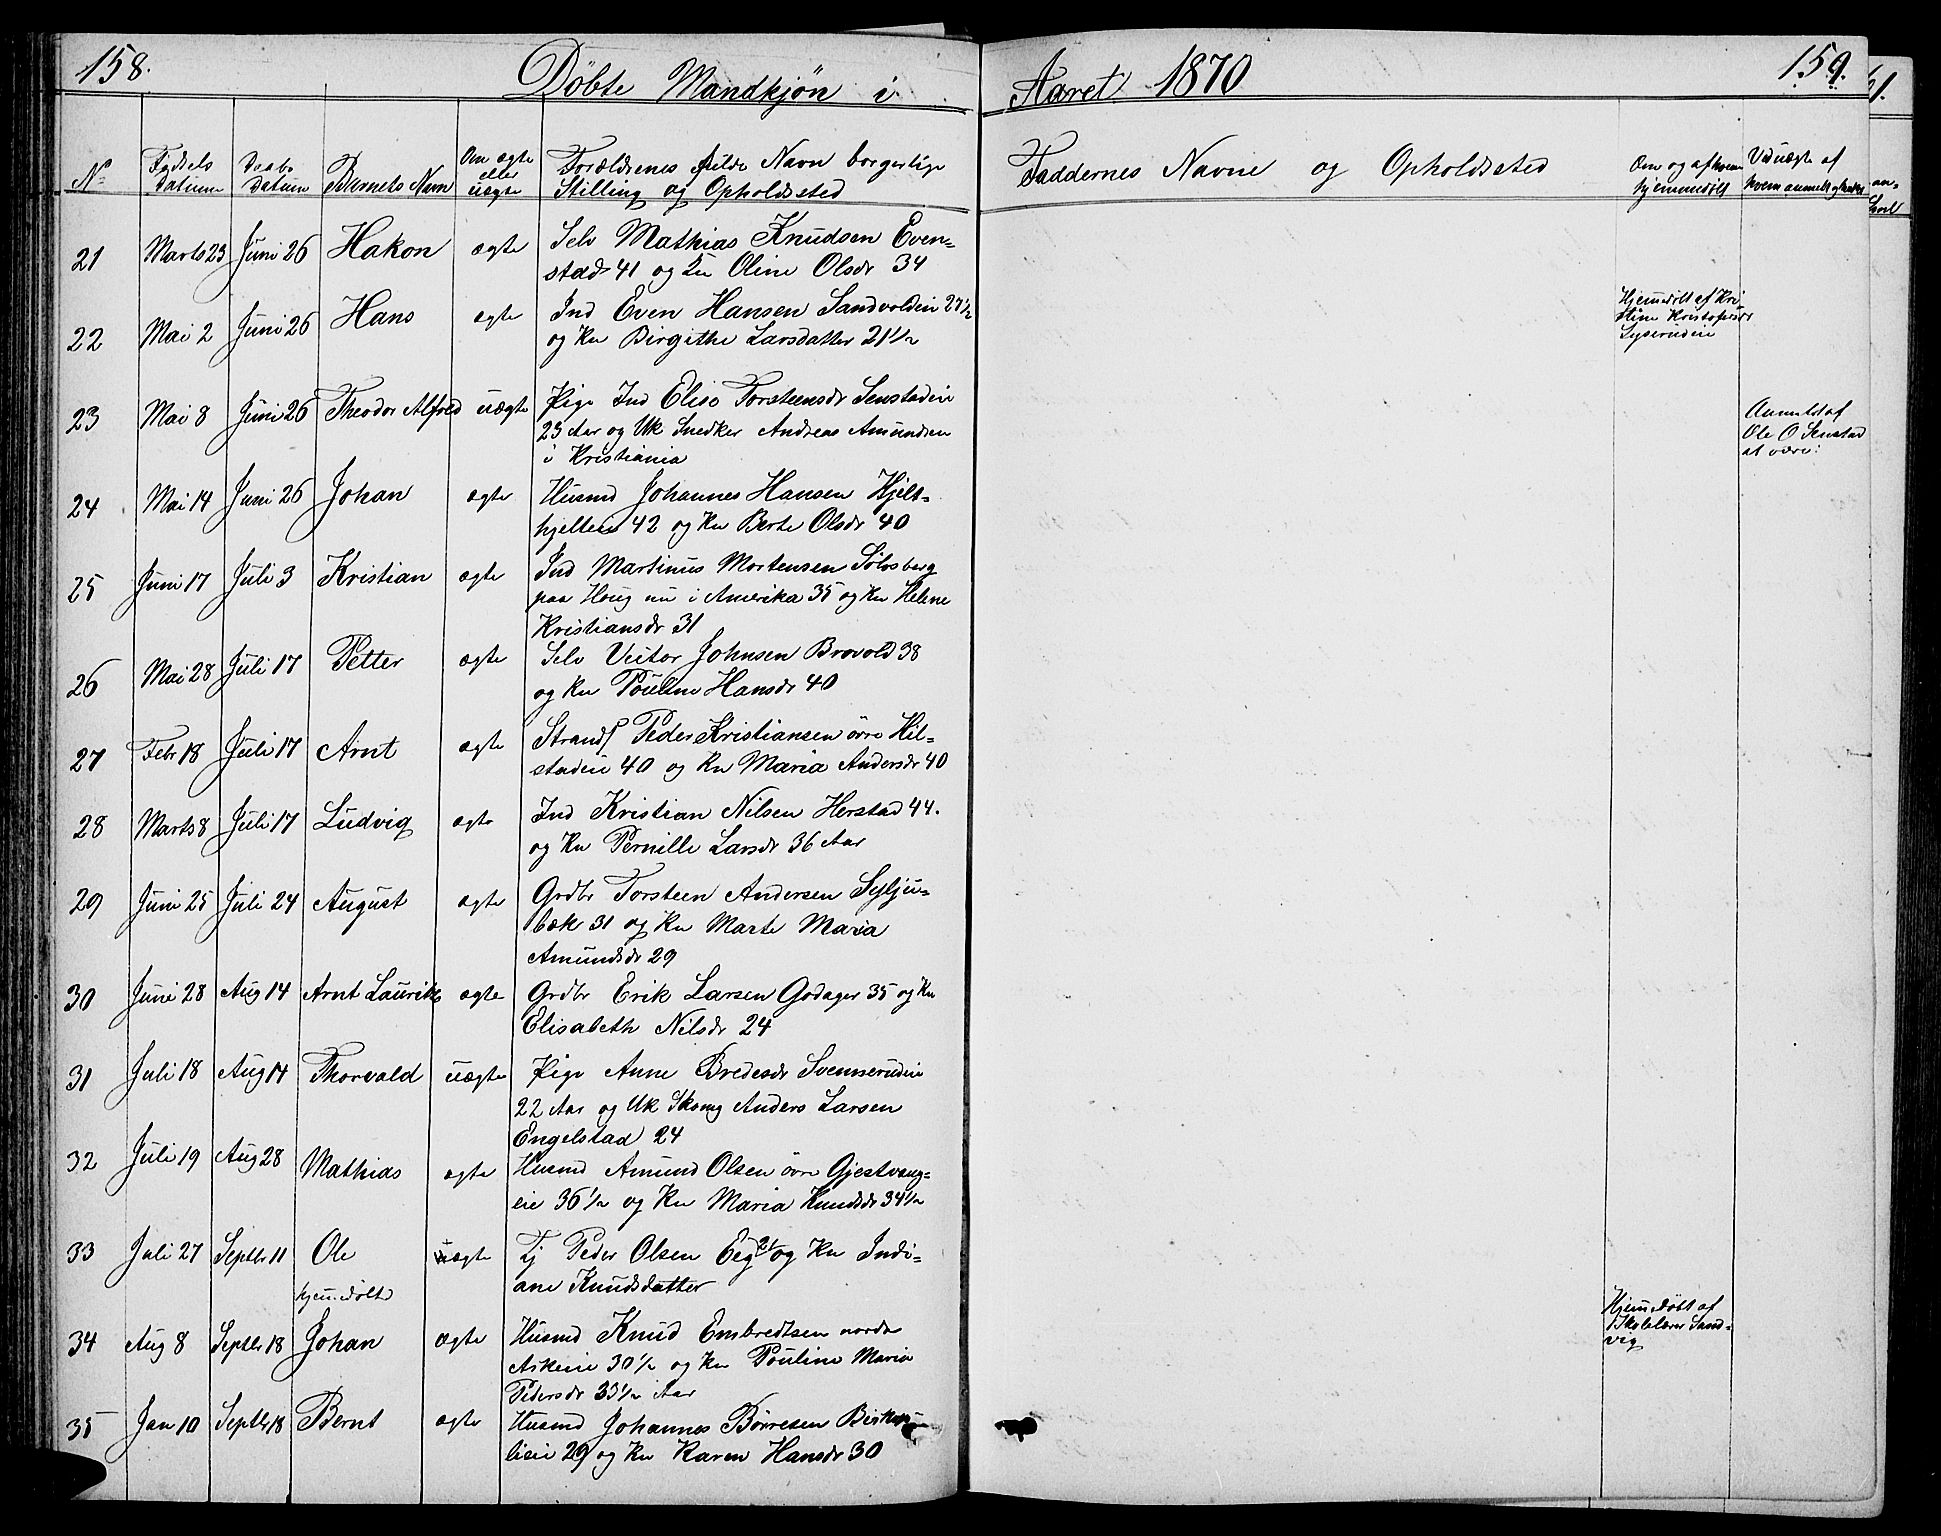 158.
Döbte Mandkjön i
Aaret 1870
159.
No
Fødsels datum
Daabs datum
Barnets Navn
Om ægte eller uægte
Forældrenes fulde Navn borgerlige
Stilling og Opholdssted
Faddernes Navne og Opholdssted
Om og af hvem hjemmedøbt
Ved uægte af hvem anmeldt
21 Marts 23 Juni 26 Hakon ægte Selv Mathias Knudsen Even-
stad 41 og Ku Oline Olsdr 34
22 Mai 2 Juni 26 Hans ægte Ind Even Hansen Sandvoldeie 27½
og Ku Birgithe Larsdatter 21½
Hjemmedöbt af Kri-
stine Kristofersdr
Lyserudeie
23 Mai 8 Juni 26 Theodor Alfred uægte Pige Ind Elise Torsteensdr Senstadeie
23 Aar og Uk Snedker Andreas Amundsen
i Kristiania
Anmeldt af
Ole O Senstad
at være:
24 Mai 14 Juni 26 Johan ægte Husmd Johannes Hansen Hjelt-
hjelteie 42 og Ku Berte Olsdr 40
25 Juni 17 Juli 3 Kristian ægte Ind Martinus Mortensen Sölvsberg
paa Houg nu i Amerika 35 og Ku Helene
Kristiansdr 31
26 Mai 28 Juli 17 Petter ægte Selv Victor Johnsen Brovold 38
og Ku Pouline Hansdr 40
27 Febr 18 Juli 17 Arnt ægte Strands Peder Kristiansen övre Hil-
stadeie 40 og Ku Maria Andersdr 40
28 Marts 8 Juli 17 Ludvig ægte Ind Kristian Nilsen Herstad 44.
og Ku Pernille Larsdr 36 Aar
29 Juni 25 Juli 24 August ægte Grdbr Torsteen Andersen Sylju-
bæk 31 og Ku Marte Maria
Amundsdr 29
30 Juni 28 Aug 14 Arnt Lauritz ægte Grdbr Erik Larsen Godager 35 og Ku
Elisabeth Nilsdr 24
31 Juli 18 Aug 14 Thorvald uægte Pige Anne Bredesdr Svennerudeie
22 Aar og Uk Skomg Anders Larsen
Engelstad 24
32 Juli 19 Aug 28 Mathias ægte Husmd Amund Olsen övre Gjestvang-
eie 36½ og Ku Maria Knudsdr 34½
33 Juli 27 Septbr 11 Ole uægte Tj Peder Olsen Eeg 21 og Ku Indi-
ane Knudsdatter
hjemmedöbt
34 Aug 8 Septbr 18 Johan ægte Husmd Knud Embredtsen nordre
Askeie 30½ og Ku Pouline Maria
Pedersdr 33½ Aar
Hjemmedöbt af
Skolelærer Sand-
vig
35 Jan 10 Septbr 18 Bernt ægte Husmd Johannes Börresen Birke-
lieie 29 og Ku Karen Hansdr 30